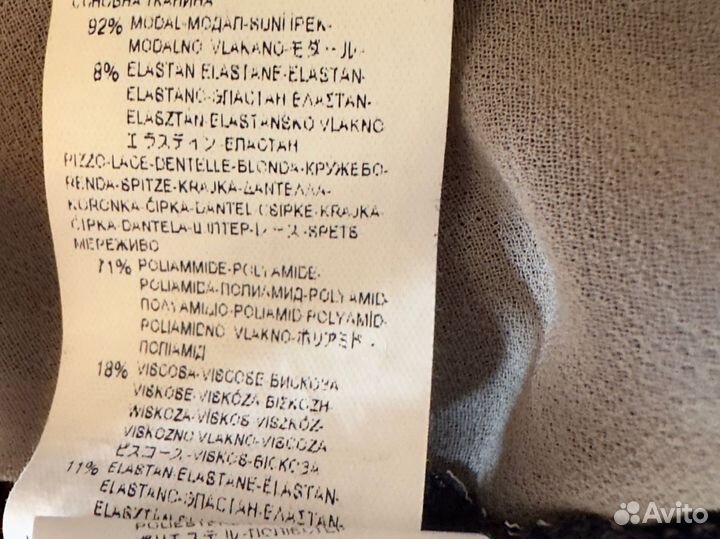 ОСНОВНА ТКАНИНА
92% MODAL-МОДАЛ-SUNİ İPEK-
MODALNO VLAKANO-モダール
8% ELASTAN ELASTANE-ELASTAN-
ELASTANO-ЭЛАСТАН ΕΛΑΣΤΑΝ-
ELASZTÁN-ELASTANSKO VLAKNO
エラスティン-ЕЛАСТАН
PIZZO-LACE-DENTELLE-BLONDA-КРУЖЕВО-
RENDA-SPITZE-KRAJKA-ΔΑΝΤΕΛΛΑ-
KORONKA-ČIPKA-DANTEL-CSIPKE-KRAJKA-
ČIPKA-DANTELA- レース-SPETS
МЕРЕЖИВО
71% POLIAMMIDE-POLYAMIDE-
POLIAMIDA-ПОЛИАМИД-POLYAMID-
ΠΟΛΥΑΜΙΔΙΟ-POLIAMID-POLYAMÍD-
POLIAMIDNO VLAKNO-ポリアミド-
ПОЛІАМІД
18% VISCOSA-VISCOSE-ВИСКОЗА
VISKOSE-VISKÓZA ΒΙΣΚΟΖΗ-
WISKOZA-VİSKOS-VISZKÓZ-
VISKOZNO VLAKNO-VISCOZA
ビスコース-VISKOS-ВІСКОЗА
11% ELASTAN-ELASTANE-ELASTAN-
ELASTANO-ЭЛАСТАН-ΕΛΑΣΤΑΝ-
Avito